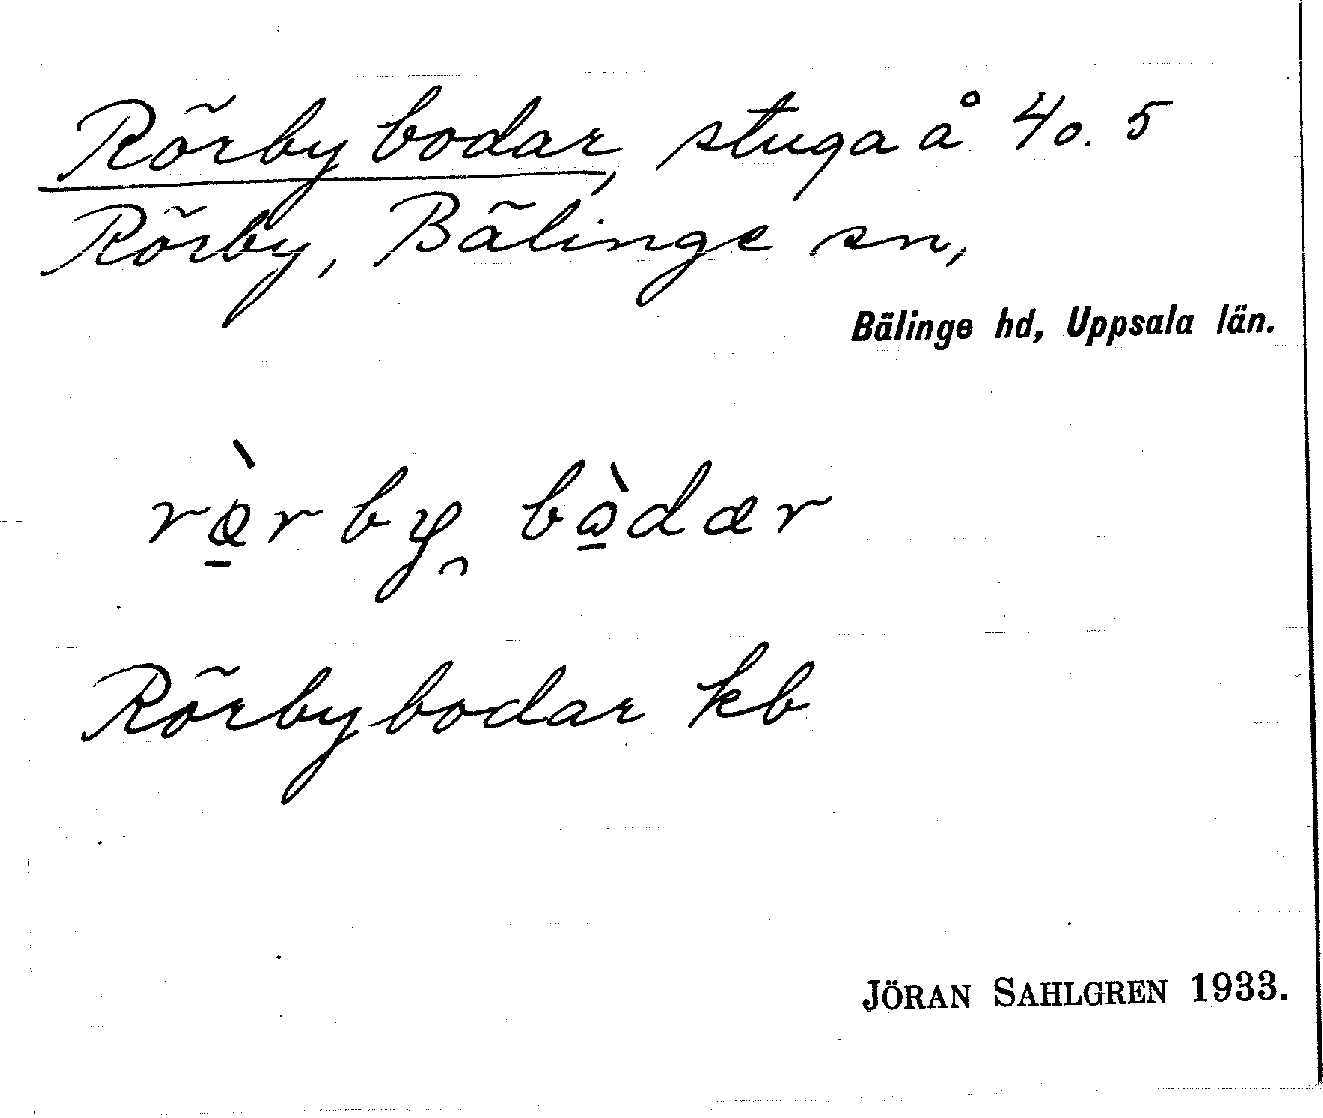 Rörbybodar, stuga å 4o. 5
Rörby, Bälinge sn,
Bälinge hd, Uppsala län.
rø̱̀rby̭ bò̱dær
Rörbybodar kb
JÖRAN SAHLGREN 1933.